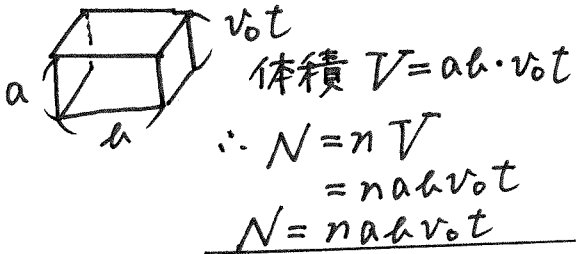 v₀t
a
b
体積 V=ab・v₀t
∴ N=nV
=nabv₀t
N=nabv₀t